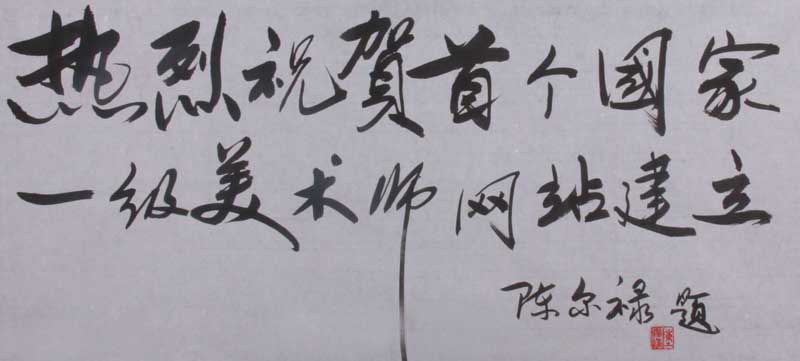 热烈祝贺首个國家
一级美术师网站建立
陈尔禄题